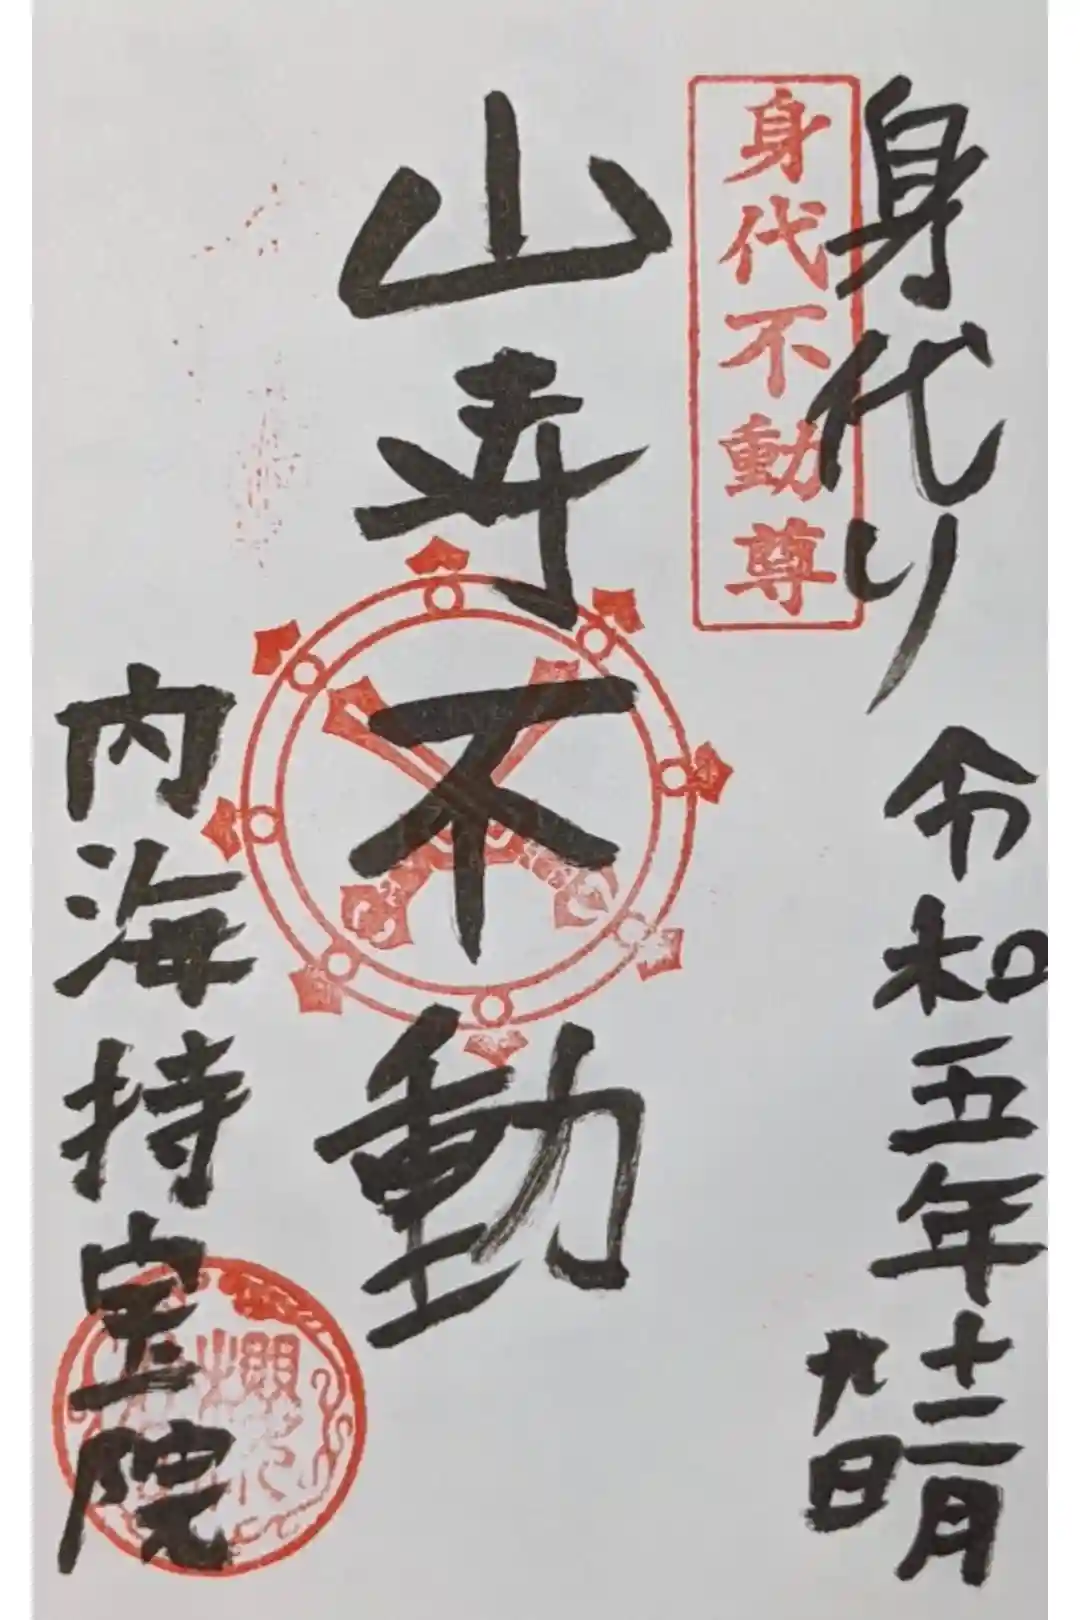 身代り
令和五年十二月
九日
身代不動尊
山寿不動
内海持宝院